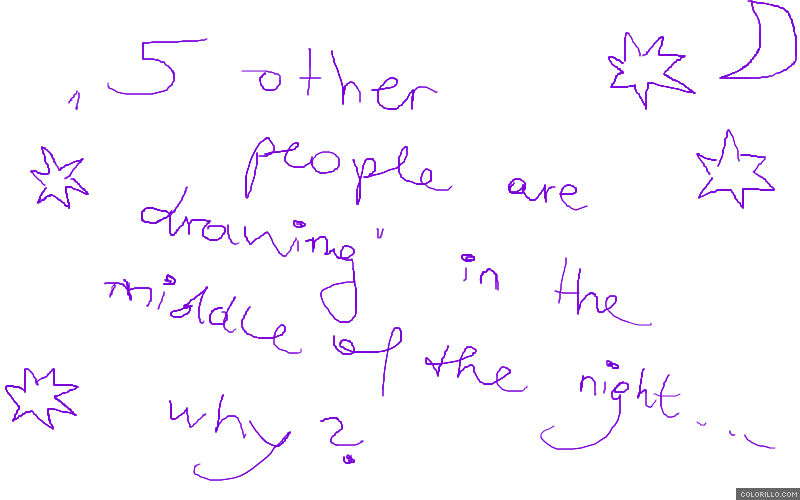 "5 other
people are
drawing" in the
middle of the night...
why?
COLORILLO.COM